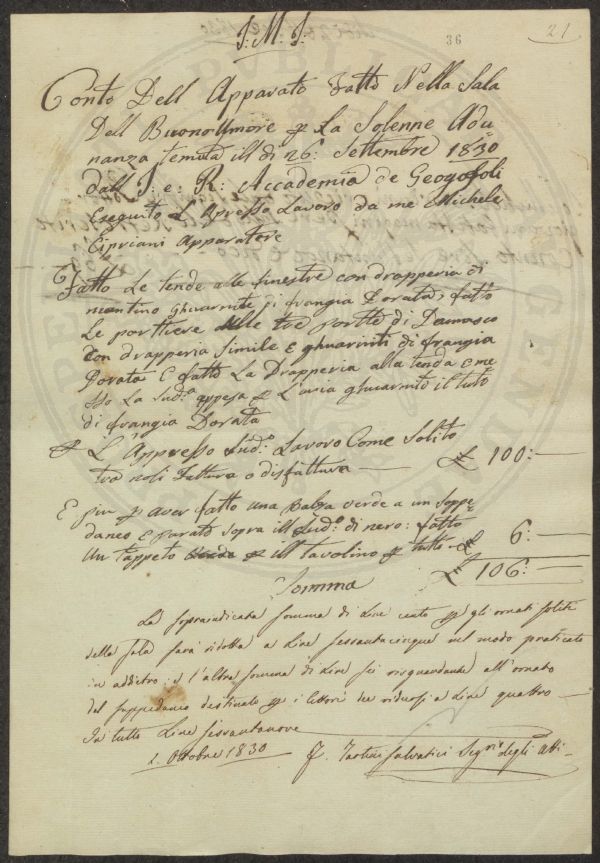 J: M: J:
36
21
Conto Dell Apparato Fatto Nella Sala
Dell BuonoUmore p La Solenne Adu
nanza tenuta ill di 26: Settembre 1830
dall J: e: R: Accademia de Geogofoli
Eseguito L Apresso Lavoro da me Michele
Cipriani Apparatore
Fatto Le tende alle finestre con drapperia di
mantino ghuarnite di frangia Dorata, fatto
Le porttiere alle tre portte di Damasco
Con drapperia simile e ghuarniti di frangia
Dorata E fatto La Drapperia alla tenda e me
sso La Sud.a appesa p L'aria ghuarnito il tuto
di frangia Dorata
p L'Appresso Sud.o Lavoro Come Solito
tra noli Fattura e disfattura — £ 100:—
E piu p aver fatto una Balza verde a un soppe=
daneo e parato sopra ill Sud.o di nero: fatto
Un tappeto p ill tavolino p tutto £ 6:—
Somma £ 106:—
La sopraindicata somma di Lire cento p gli ornati soliti
della sala sarà ridotta a Lire sessantacinque nel modo praticato
in addietro: e l'altra somma di Lire sei risguardante all'ornato
del suppedaneo destinato p i lettori dee ridursi a Lire quattro —
In tutto Lire sessantanove
1. Ottobre 1830 F. Tartini Salvatici Seg.rio degli Atti—